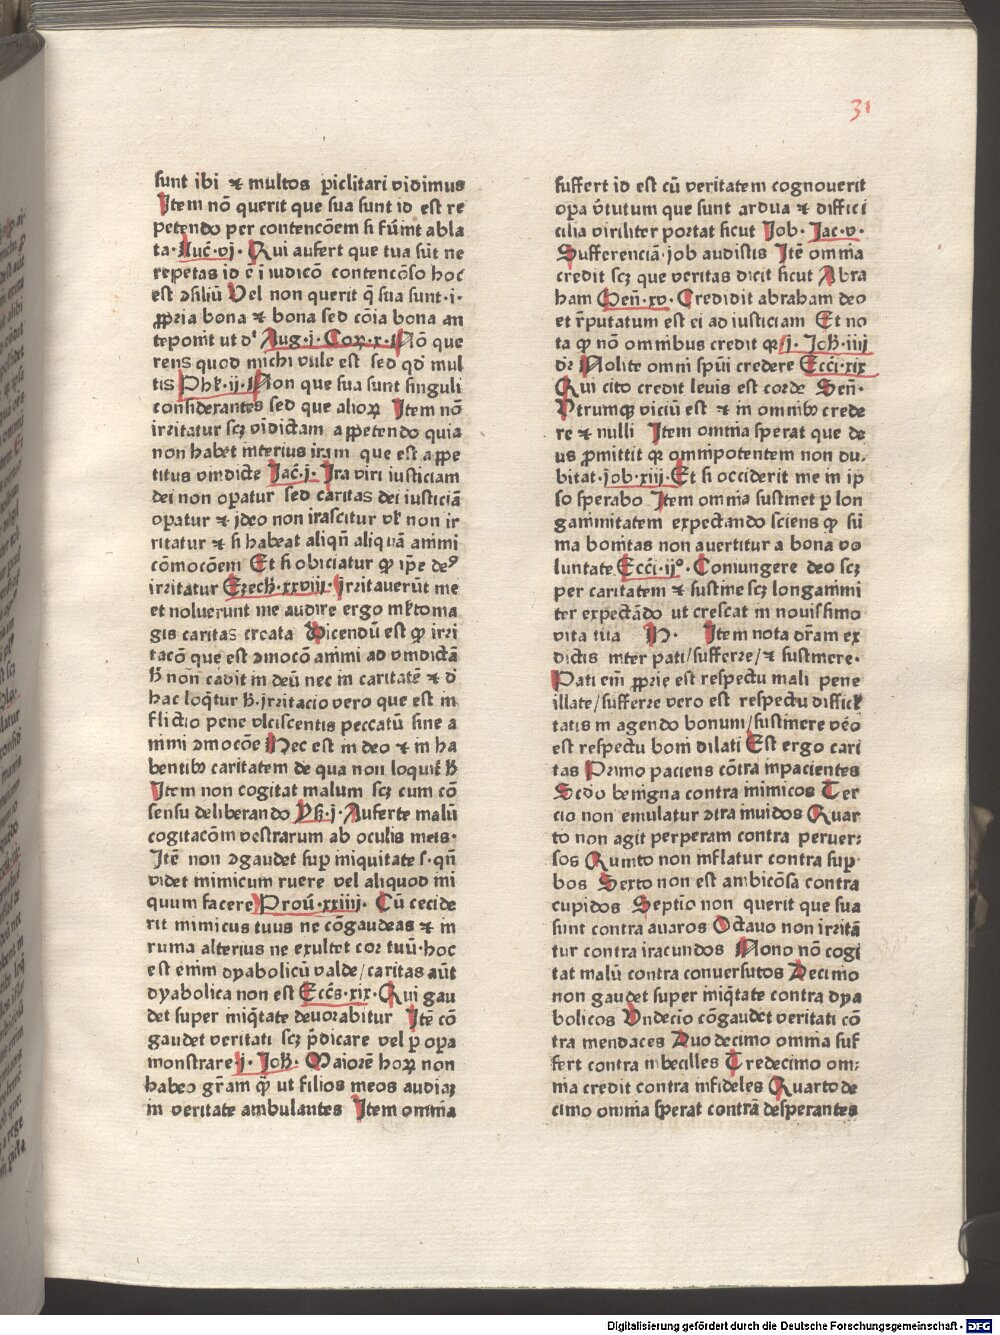 31
sunt ibi ⁊ multos p̄iclitari vidimus
Item nō querit que sua sunt id est re
petendo per contencōem si fūīnt abla
ta· Luc̄·vj· Qui aufert que tua sūt ne
repetas id ē ī iudicō contencōso hoc
est ꝯsiliū Vel non querit q̄ sua sunt·i·
ꝓpria bona ⁊ bona sed cōia bona an
teponit ut dt̄ Aug·j·Coꝝ·x·Nō que
rens quod michi vtile est sed qd̄ mul
tis Phil̄·ij·Non que sua sunt singuli
considerantes sed que alioꝝ Item nō
irritatur scꝫ vīdictam appetendo quia
non habet interius iram que est appe
titus vindicte Jac̄·j· Ira viri iusticiam
dei non op̄atur sed caritas dei iusticiā
op̄atur ⁊ jdeo non irascitur vl̄ non ir
ritatur ⁊ si habeat aliqn̄ aliquā animi
cōmocōem Et si obiciatur ꝙ ip̄e deꝰ
irritatur Ezech̄·xxviij·irritauerūt me
et noluerunt me audire ergo ml̄toma
gis caritas creata Dicendū est ꝙ irri
tacō que est ꝯmocō animi ad vindictā
h̄ non cadit in deū nec in caritatē ⁊ d̄
hac loq̄tur h̄·jrritacio vero que est in
flictio pene vlciscentis peccatū sine a
nimi ꝯmocōe Hec est in deo ⁊ in ha
bentibꝫ caritatem de qua non loquit̄ h̄
Item non cogitat malum scꝫ cum cō
sensu deliberando Ys̄·j·Auferte malū
cogitacōm vestrarum ab oculis meis·
Itē non ꝯgaudet sup̱ iniquitate s·qn̄
videt inimicum ruere vel aliquod ini
quum facere Prou̅·xxiiij· Cū cecide
rit inimicus tuus ne cōgaudeas ⁊ in
ruina alterius ne exultet cor tuū·hoc
est enim dyabolicū valde/caritas aūt
dyabolica non est Ecc̄s·xix·Qui gau
det super iniq̄tate deuorabitur Itē cō
gaudet veritati scꝫ p̄dicare vel ꝑ op̄a
monstrare·j·Joh̄· Maiorē hoꝝ non
habeo gr̄am q̄ ut filios meos audiaꝫ
in veritate ambulantes Item omnia
suffert id est cū veritatem cognouerit
op̄a v̄tutum que sunt ardua ⁊ diffici
cilia viriliter portat sicut Job·Jac·v·
Sufferenciā·job audistis Itē omnia
credit scꝫ que veritas dicit sicut Abra
ham Gen̄·xv·Credidit abraham deo
et r̄putatum est ei ad iusticiam Et no
ta ꝙ nō omnibus credit qꝛ·j·Joh̄·iiij
dꝛ Nolite omni spūi credere Ecc̄i·xix
Qui cito credit leuis est corde Sen̄·
Vtrumqꝫ viciū est ⁊ in omnibꝫ crede
re ⁊ nulli Item omnia sperat que de
us ꝓmittit qꝛ omnipotentem non du·
bitat·job·xiij·Et si occiderit me in ip
so sperabo Item omnia sustinet ꝑ lon
ganimitatem expectando sciens ꝙ sū
ma bonitas non auertitur a bona vo
luntate Ecc̄i·ijº·Coniungere deo scꝫ
per caritatem ⁊ sustine scꝫ longanimi
ter expectādo ut crescat in nouissimo
vita tua N· Item nota dr̄am ex
dictis inter pati/sufferre/⁊ sustinere·
Pati eīm ꝓprie est respectu mali pene
illate/sufferre vero est respectu difficl̄
tatis in agendo bonum/sustinere v̄eo
est respectu boni dilati Est ergo cari
tas Primo paciens cōtra inpacientes
Scd̄o benigna contra inimicos Ter
cio non emulatur ꝯtra inuidos Quar
to non agit perperam contra peruer:
sos Quinto non inflatur contra sup̱
bos Sexto non est ambicōsa contra
cupidos Septīo non querit que sua
sunt contra auaros Octauo non irritā
tur contra iracundos Nono nō cogi
tat malū contra conuersutos Decimo
non gaudet super iniq̄tate contra dya
bolicos Vndecīo cōgaudet veritati cō
tra mendaces Duodecimo omnia suf
fert contra inbecilles Tredecimo om:
nia credit contra infideles Quartode
cimo omnia sperat contrā desperantes
Digitalisierung gefördert durch die Deutsche Forschungsgemeinschaft · DFG